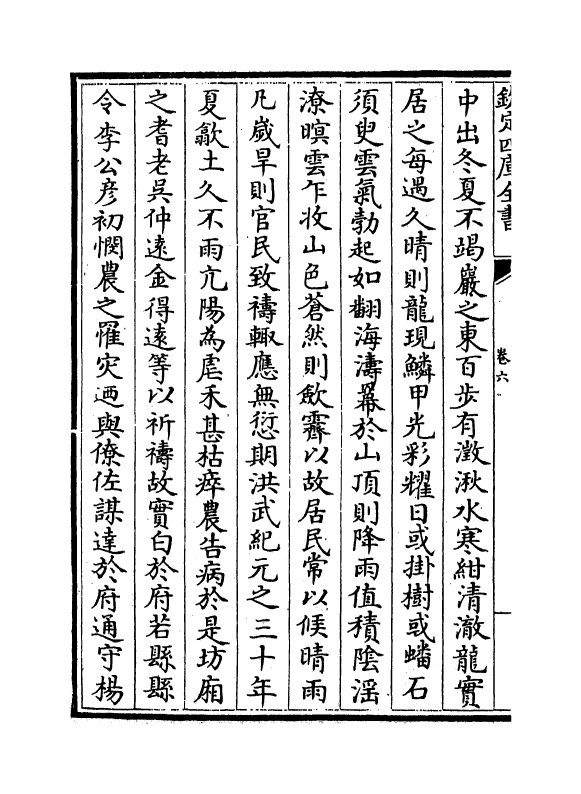 欽定四庫全書
卷六
中出冬夏不竭巖之東百步有澂湫水寒紺清澈龍實
居之每遇久晴則龍現鱗甲光彩耀日或掛樹或蟠石
須臾雲氣勃起如翻海濤羃於山頂則降雨值積陰滛
潦暝雲乍收山色蒼然則歛霽以故居民常以候晴雨
凡嵗旱則官民致禱輙應無愆期洪武紀元之三十年
夏歙土久不雨亢陽為虐禾甚枯瘁農告病於是坊廂
之耆老吳仲遠金得遠等以祈禱故實白於府若縣縣
令李公彦初憫農之罹灾迺與僚佐謀達於府通守楊